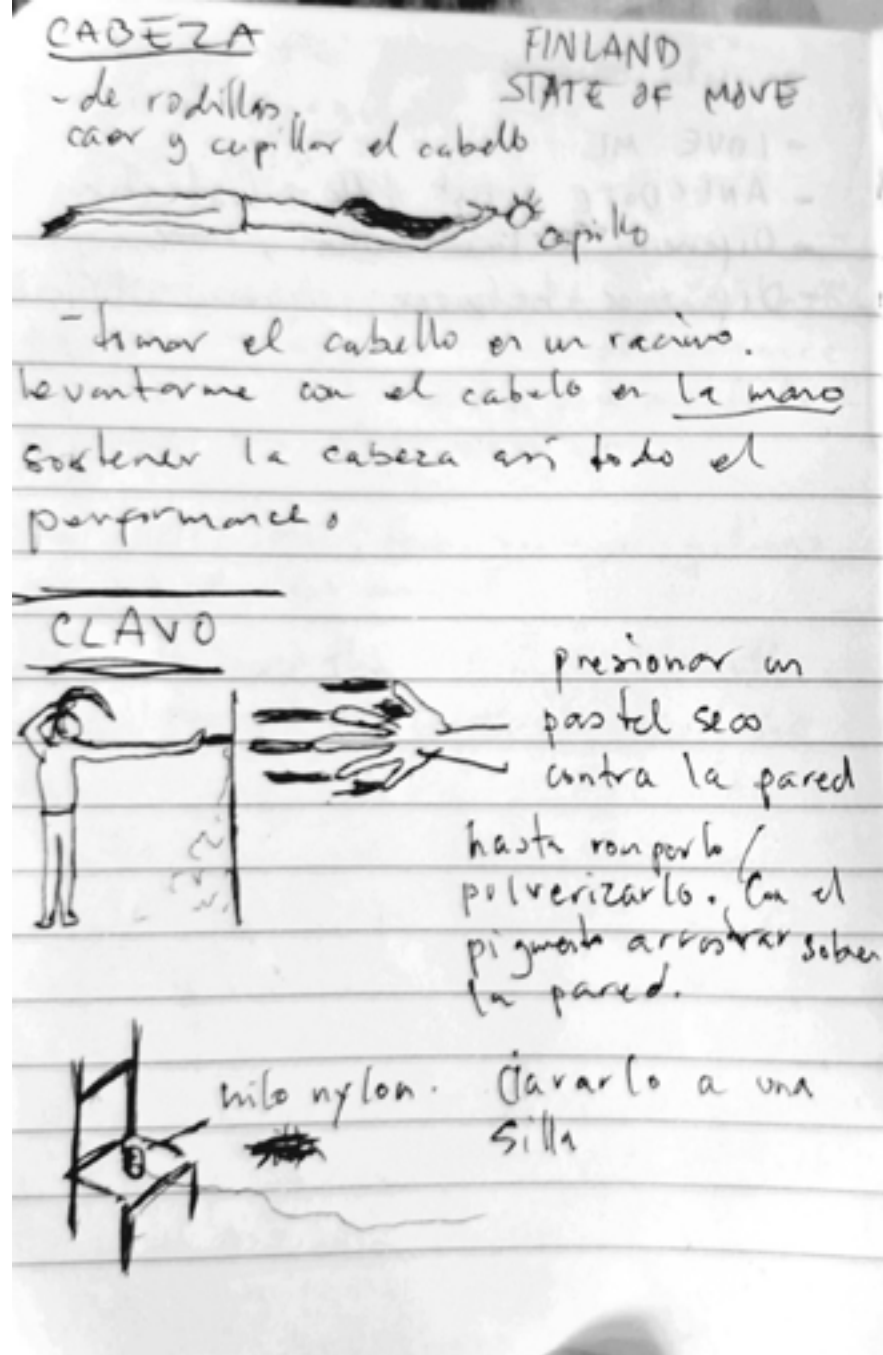 CABEZA
FINLAND
STATE OF MOVE
- de rodillas.
caer y cepillar el cabello
cepillo
- tomar el cabello en un racimo.
levantarme con el cabelo en la mano
sostener la cabeza así todo el
performance.
CLAVO
presionar un
pastel seco
contra la pared
hasta romperlo /
pulverizarlo. Con el
pigmento arrastrar sobre
la pared.
hilo nylon. Clavarlo a una
silla